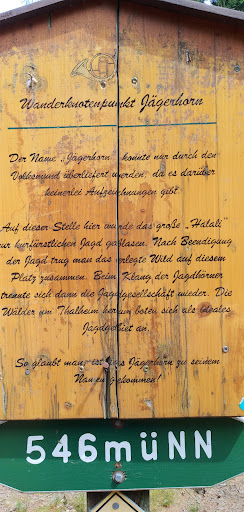 Wanderknotenpunkt Jägerhorn
Der Name „Jägerhorn" konnte nur durch den
Volksmund überliefert werden, da es darüber
keinerlei Aufzeichnungen gibt.
Auf dieser Stelle hier wurde das große „Halali"
zur kurfürstlichen Jagd geblasen. Nach Beendigung
der Jagd trug man das erlegte Wild auf diesem
Platz zusammen. Beim Klang der Jagdhörner
trennte sich dann die Jagdgesellschaft wieder. Die
Wälder um Thalheim herum boten sich als ideales
Jagdgebiet an.
So glaubt man, ist das Jägerhorn zu seinem
Namen gekommen!
546müNN